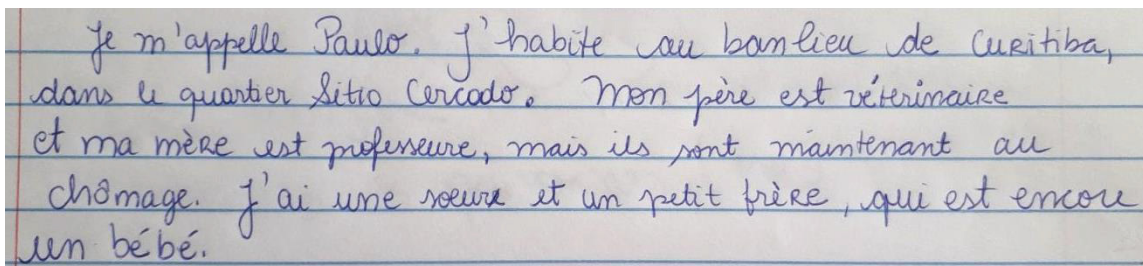 Je m'appelle Paulo. J'habite au banlieu de Curitiba,
dans le quartier Sitio Cercado. Mon père est véterinaire
et ma mère est professeure, mais ils sont maintenant au
chômage. J'ai une soeure et un petit frère, qui est encore
un bébé.